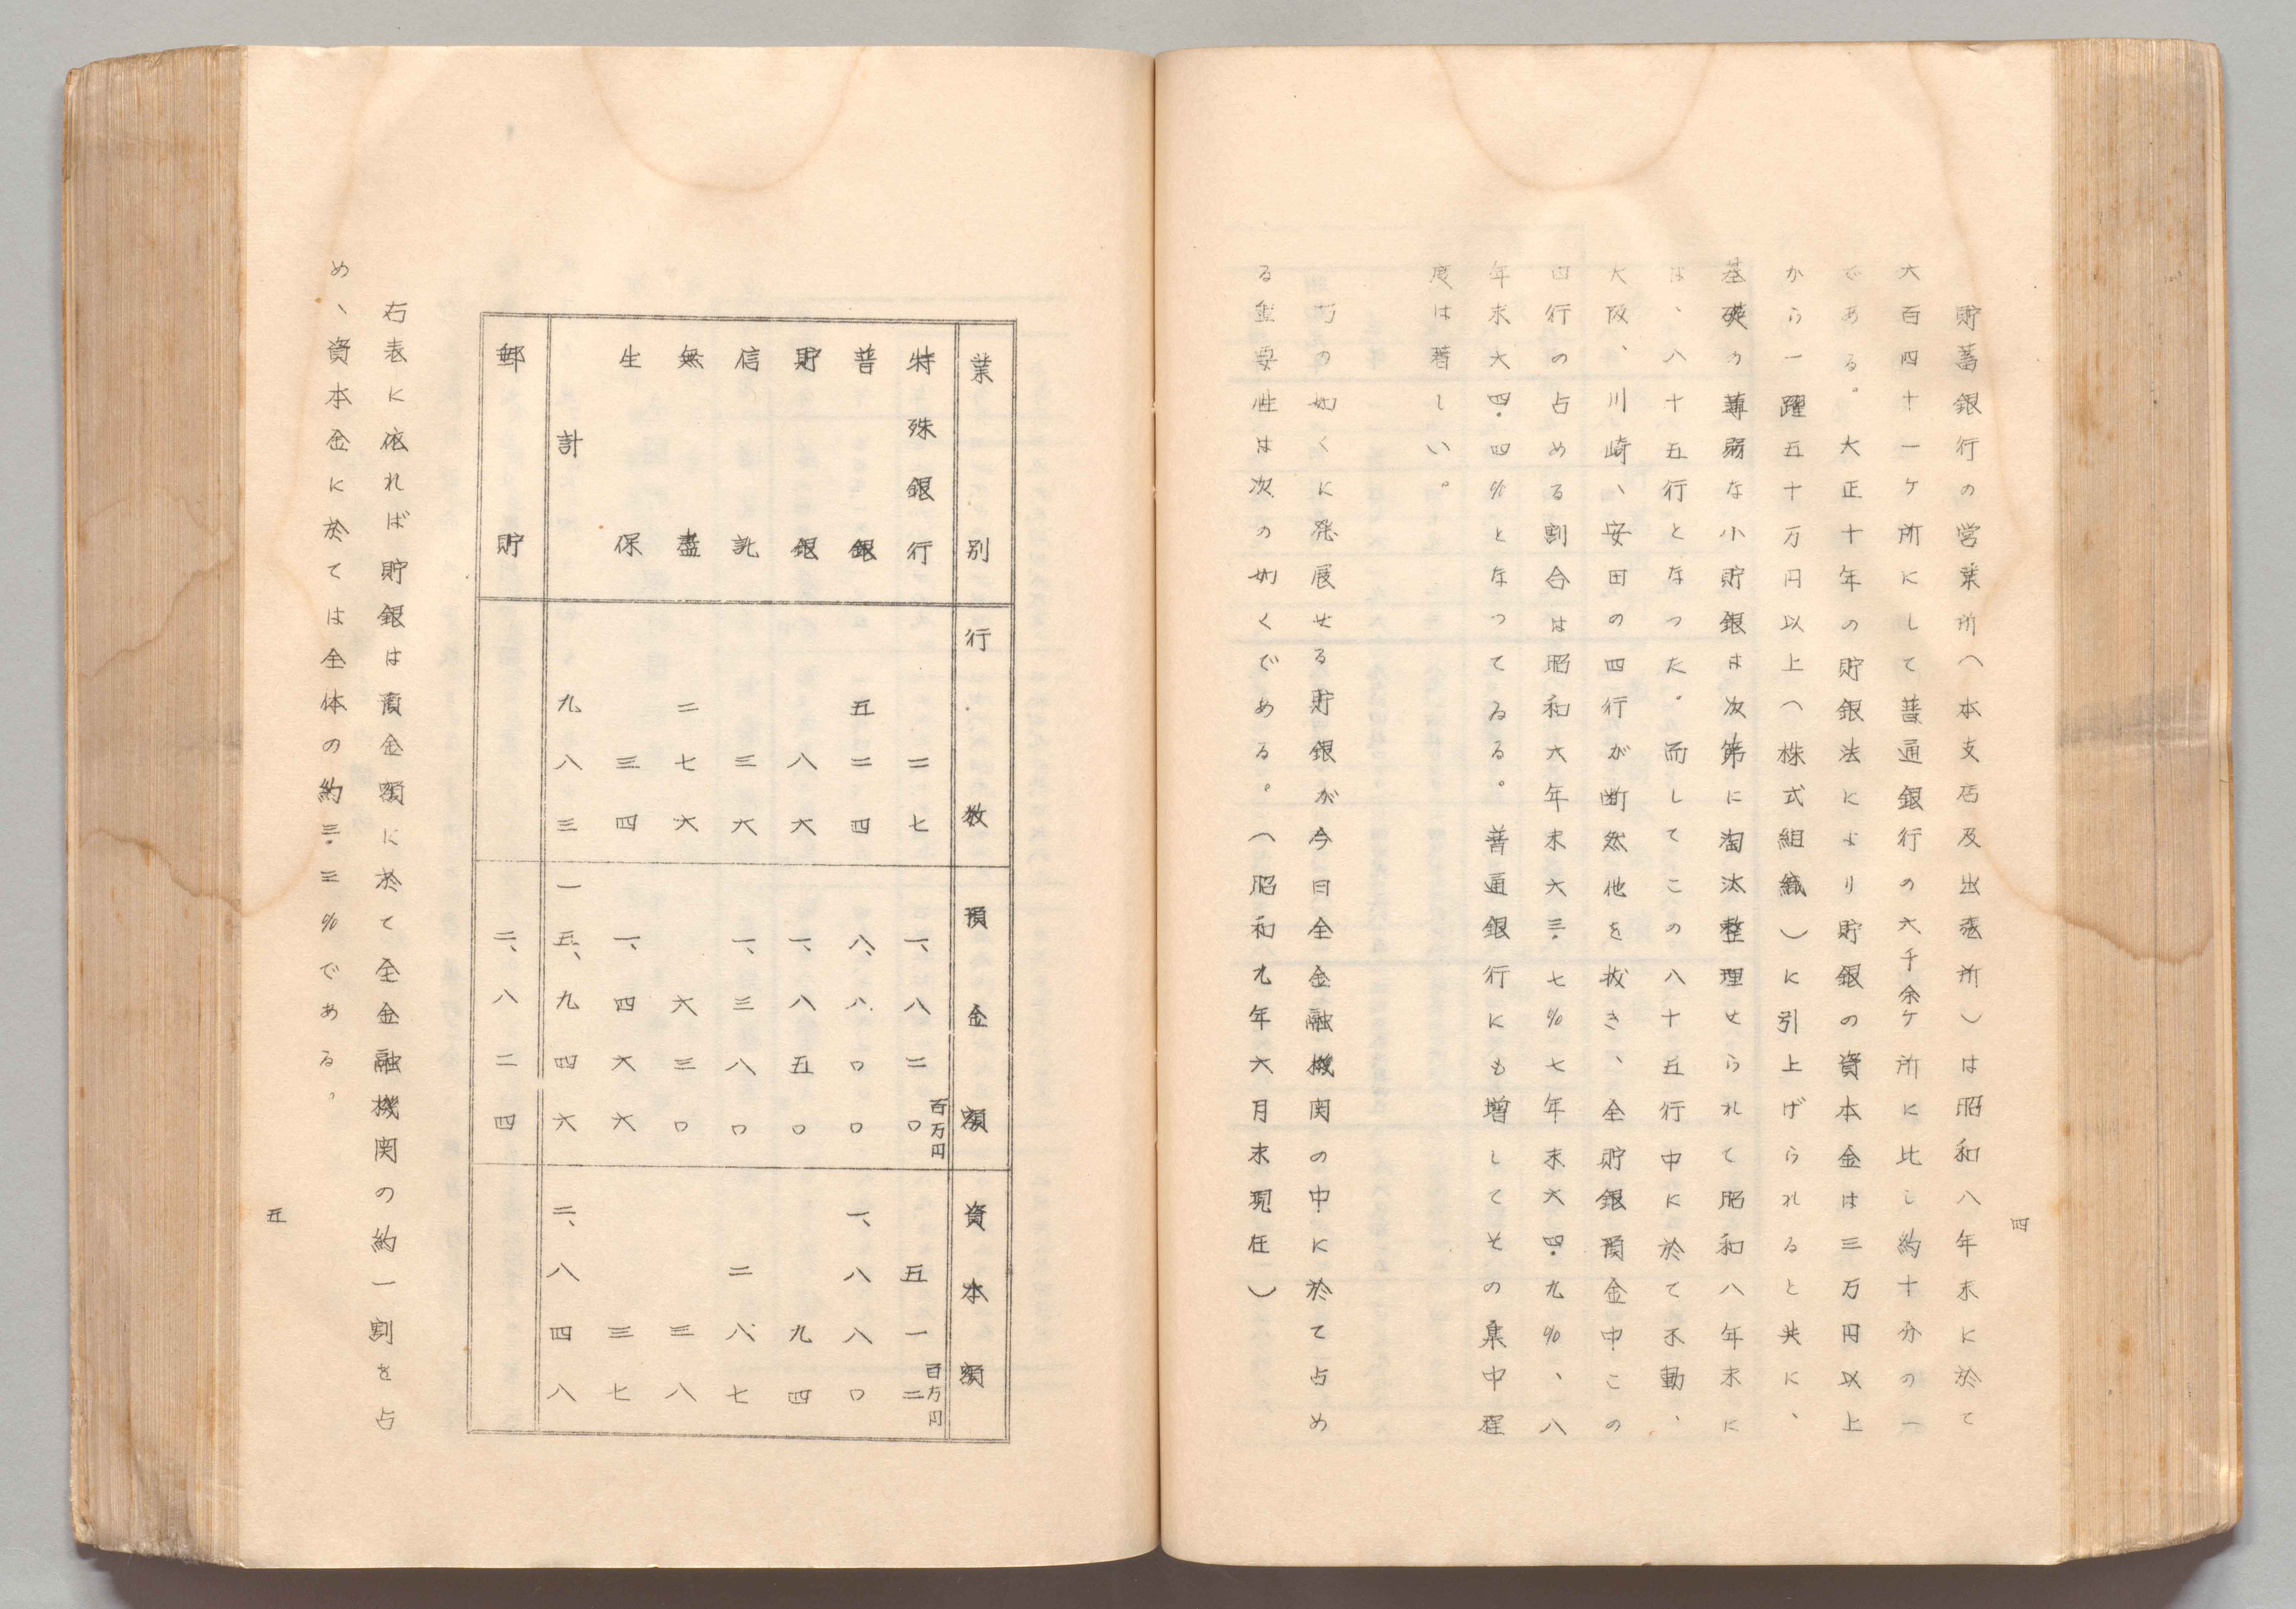 貯蓄銀行の営業所(本支店及出張所)は昭和八年末に於て
六百四十一ケ所にして普通銀行の六千余ケ所に比し約十分の一
である。大正十年の貯銀法により貯銀の資本金は三万円以上
から一躍五十万円以上(株式組織)に引上げられると共に、
基礎の薄弱な小貯銀は次第に淘汰整理せられて昭和八年末に
は、八十五行となつた。而してこの八十五行中に於て不動、
大阪、川崎、安田の四行が断然他を抜き、全貯銀預金中この
四行の占める割合は昭和六年末六三.七%七年末六四.九%、八
年末六四.四%となつてゐる。普通銀行にも増してその集中程
度は著しい。
の如くに発展せる貯銀が今日全金融機関の中に於て占め
る重要性は次の如くである。(昭和九年六月末現在)
四
業別 行数 預金額 資本額
特殊銀行 二七 一、八二〇百万円 五一二百万円
普銀 五二四 八、八〇〇 一、八八〇
貯銀 八六 一、八五〇 九四
信託 三六 一、三八〇 二八七
無盡 二七六 六三〇 三八
生保 三四 一、四六六 三七
計 九八三 一五、九四六 二、八四八
郵貯 二、八二四
右表に依れば貯銀は預金額に於て全金融機関の約一割を占
め、資本金に於ては全体の約三.三%である。
五